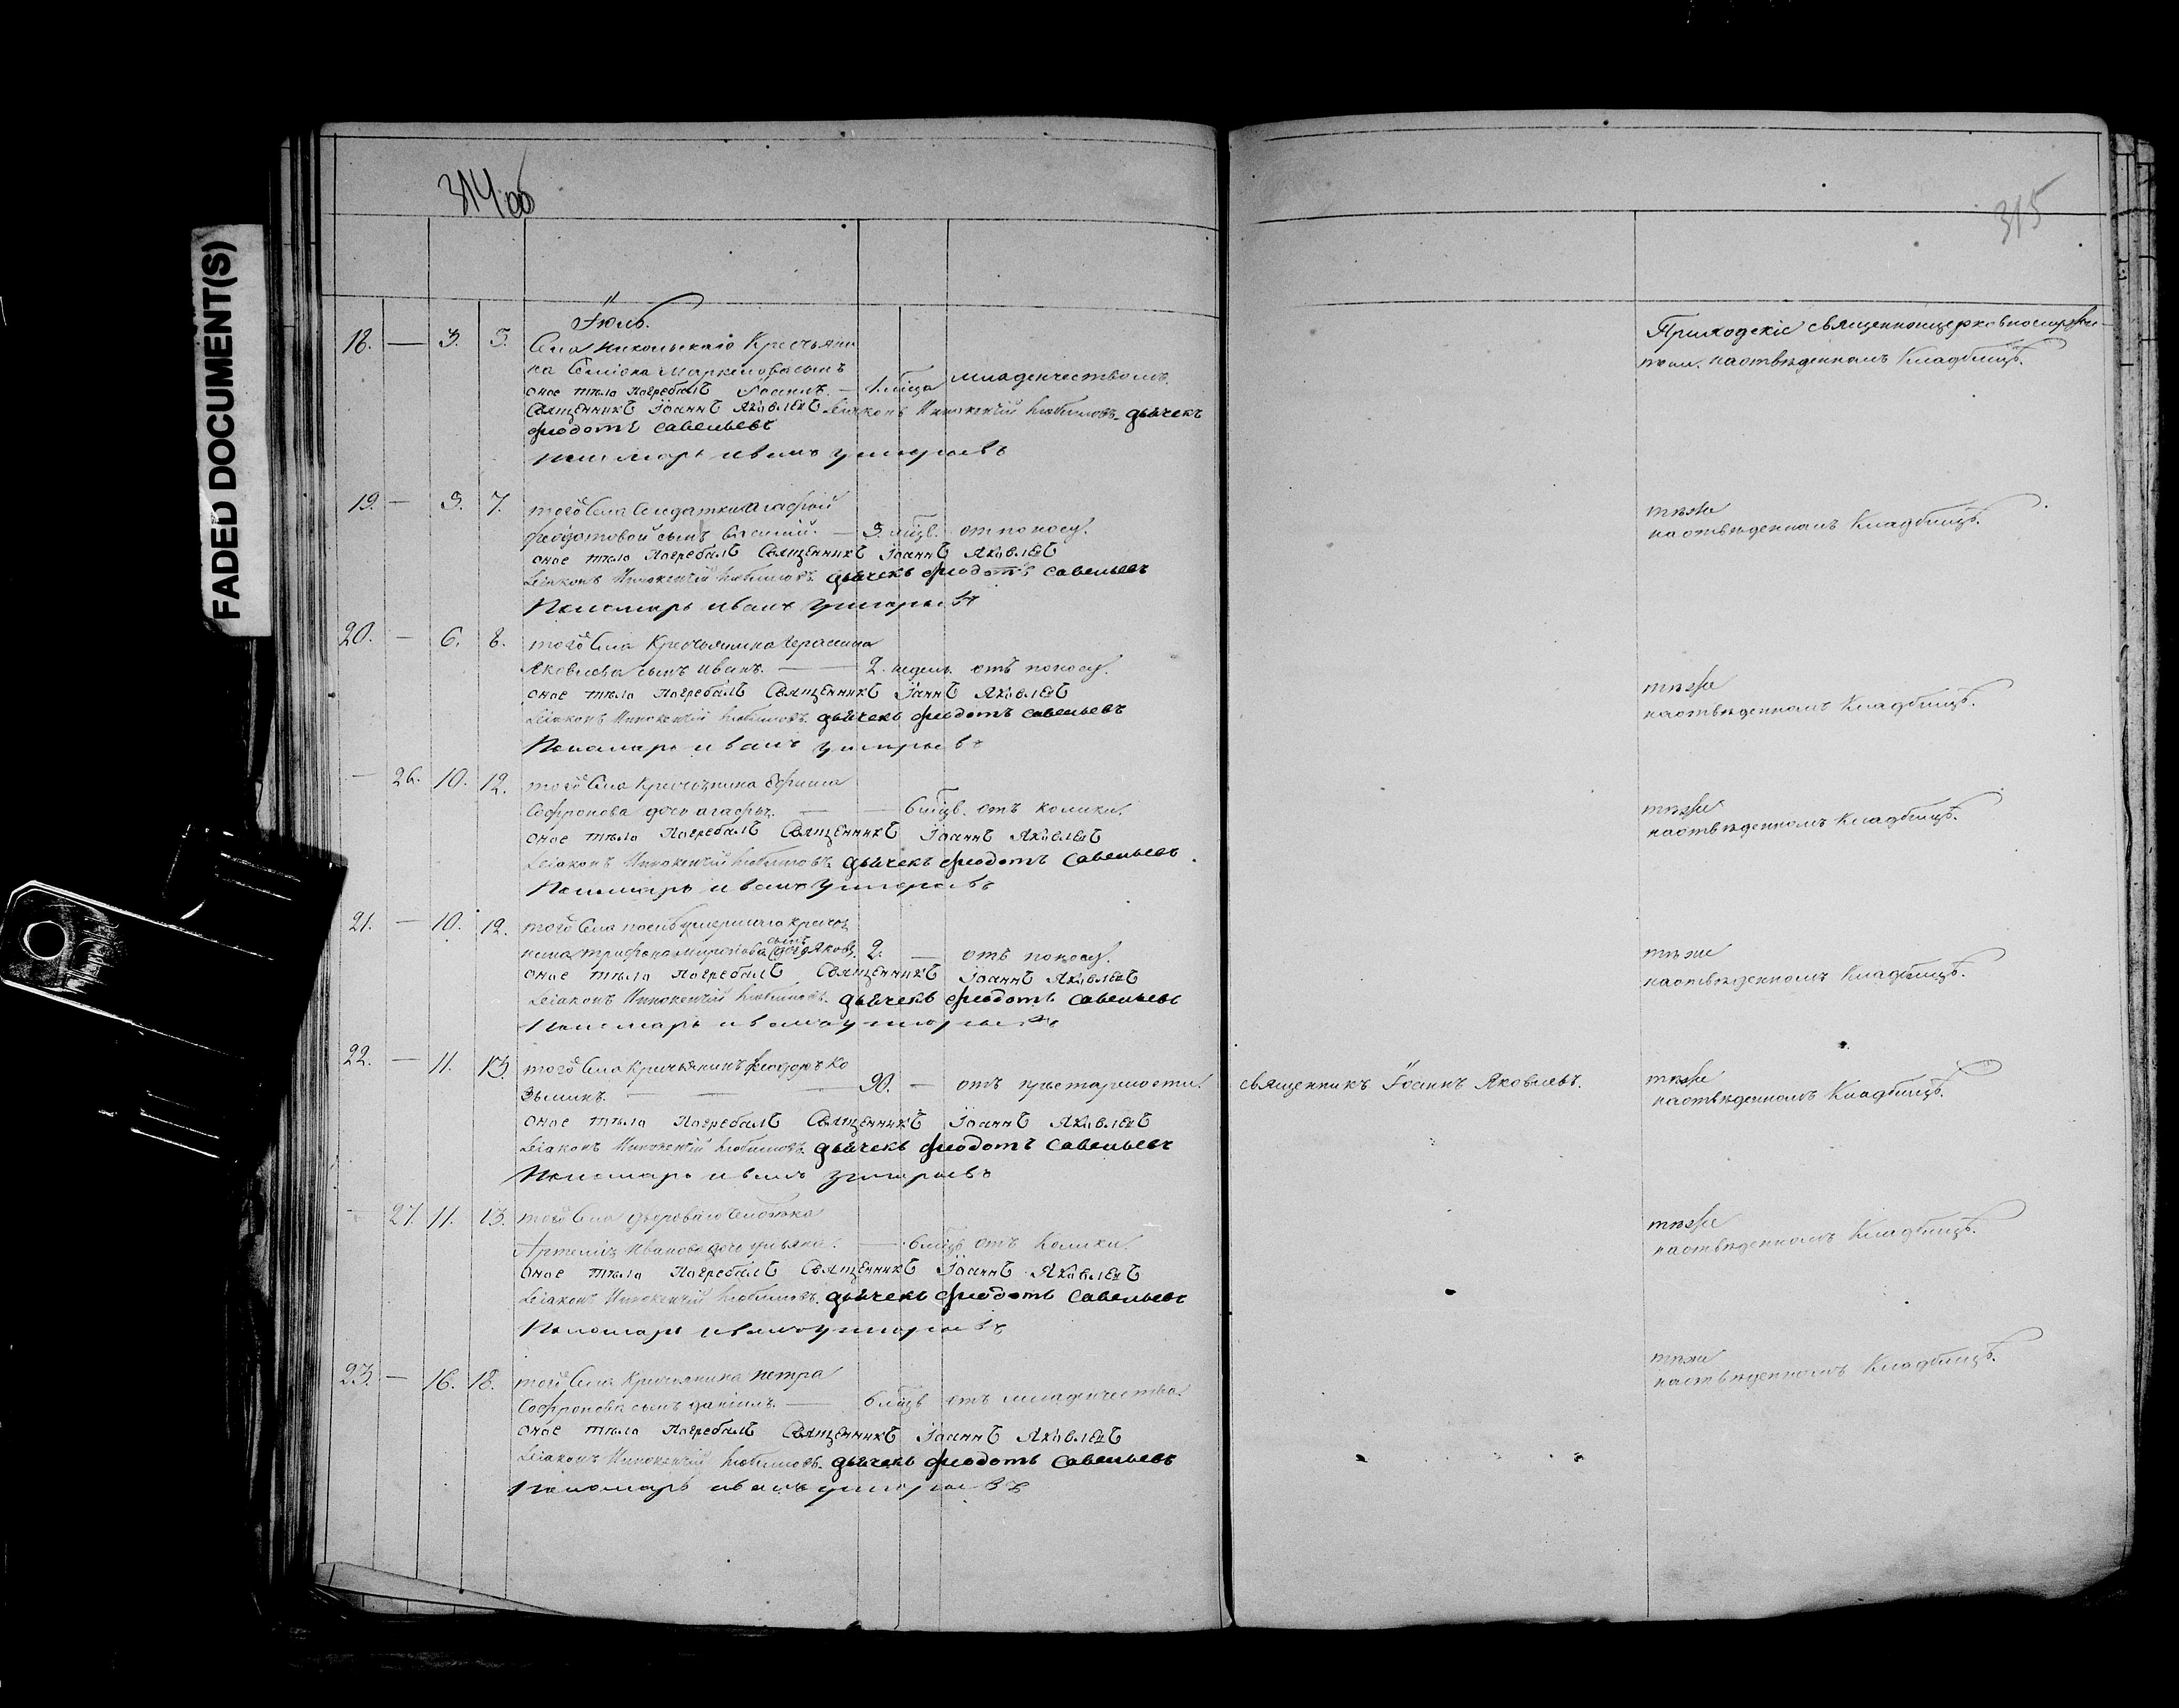 314 об
315
FADED DOCUMENT(S)
Іюль.
18. — 3. 5. Села Никольскаго Крестьяни
на Маркелова сынъ
оное тѣло Погребалъ Іоаннъ. — 1. мѣсца младенчествомъ.
Священникъ Іоаннъ Яковлевъ Діаконъ Инокентій Любимовъ. дьячекъ
феодотъ савельевъ
пономарь иванъ григорьевъ
Приходскіе священноцерковнослужи
тели. наотвѣденномъ Кладбищѣ.
19. — 3. 7. того Села Солдатки Агафьи
феодотовой сынъ — 3. мѣцв. от поносу.
оное тѣло Погребалъ Священникъ Іоаннъ Яковлевъ
Діаконъ Инокентій Любимовъ. дьячекъ феодотъ савельевъ
Пономарь иванъ григорьевъ
тѣже
наотвѣденномъ Кладбищѣ.
20. — 6. 8. того Села Крестьянина Герасима
Яковлева сынъ иванъ. — 2. недель отъ поносу.
оное тѣло Погребалъ Священникъ Іоаннъ Яковлевъ
Діаконъ Инокентій Любимовъ. дьячекъ феодотъ савельевъ
Пономарь иванъ григорьевъ
тѣже
наотвѣденномъ Кладбищѣ.
— 26. 10. 12. того Села Крестьянина Ефима
Софронова дочь агафья. — 6 мѣцв. отъ колики.
оное тѣло Погребалъ Священникъ Іоаннъ Яковлевъ
Діаконъ Инокентій Любимовъ. дьячекъ феодотъ савельевъ.
Пономарь иванъ григорьевъ
тѣже
наотвѣденномъ Кладбищѣ.
21. — 10. 12. того Села умершаго крестья
нина трифона сынъ Яковъ. 2. — отъ поносу.
оное тѣло Погребалъ Священникъ Іоаннъ Яковлевъ
Діаконъ Инокентій Любимовъ. дьячекъ феодотъ савельевъ
Пономарь иванъ григорьевъ
тѣже
наотвѣденномъ Кладбищѣ.
22. — 11. 13. того Села Крестьянинъ феодоръ Ко
зьминъ. — 90. — отъ престарелости. священникъ Іоаннъ Яковлевъ.
оное тѣло Погребалъ Священникъ Іоаннъ Яковлевъ
Діаконъ Инокентій Любимовъ. дьячекъ феодотъ савельевъ
Пономарь иванъ григорьевъ
тѣже
наотвѣденномъ Кладбищѣ.
— 27. 11. 13. того Села дворового человека
Артемія Иванова дочь ульяна. — 6 мѣцв отъ Колики.
Оное тѣло Погребалъ Священникъ Іоаннъ Яковлевъ
Діаконъ Инокентій Любимовъ. дьячекъ феодотъ савельевъ
Пономарь иванъ григорьевъ
тѣже
наотвѣденномъ Кладбищѣ.
23. — 16. 18. того Села Крестьянина петра
Софронова сынъ даніилъ. — 6 мѣцв отъ младенчества
оное тѣло Погребалъ Священникъ Іоаннъ Яковлевъ
Діаконъ Инокентій Любимовъ. дьячекъ феодотъ савельевъ
Пономарь иванъ григорьевъ
тѣже
наотвѣденномъ Кладбищѣ.